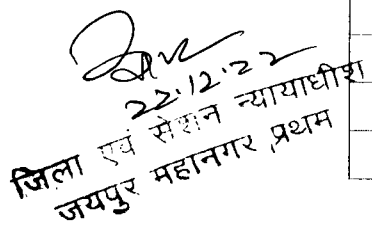 22.12.22
जिला एवं सेशन न्यायाधीश
जयपुर महानगर, प्रथम